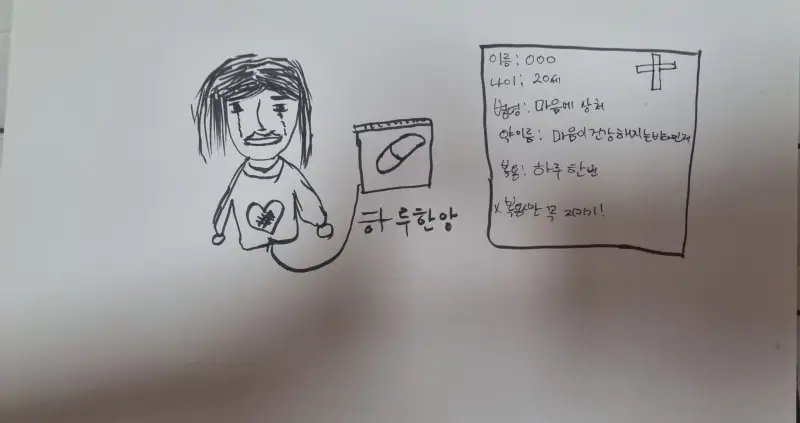 하루한양
이름: OOO
나이: 20세
병명: 마음에 상처
약이름: 마음이건강해지는비타민제
복용: 하루 한번
꼭 지키기!